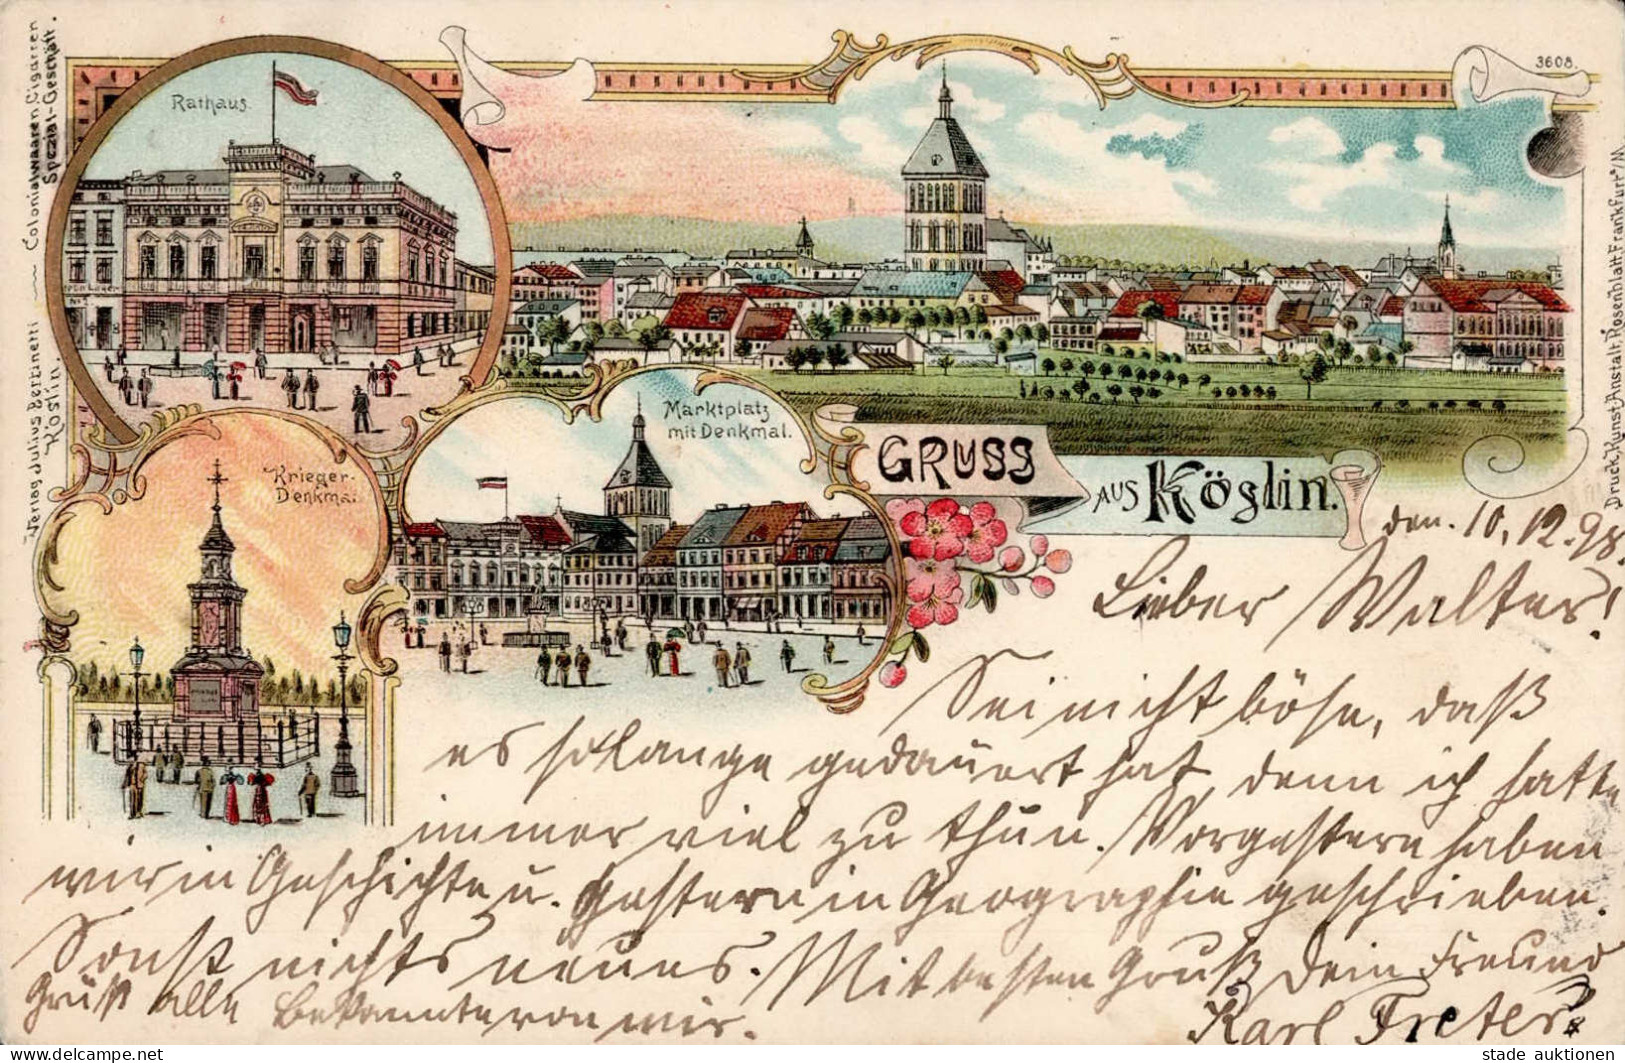 Colonialwaaren, Cigarren
Spezial-Geschäft.
Verlag Julius
Köslin.
Rathaus.
3608.
Krieger-
Denkmal.
Marktplatz
mit Denkmal.
GRUSS
AUS Köslin.
Druck, Kunst Anstalt, Rosenblatt, Frankfurt a/M.
den. 10.12.98.
Lieber Walter!
Sei nicht böse, daß
es solange gedauert hat, denn ich hatte
immer viel zu thun. Vorgestern haben
wir in Geschichte u. Gestern in Geographie geschrieben.
Sonst nichts neues. Mit besten Gruß Dein Freund
Grüß alle Bekannte von mir. Karl Freter
stade auktionen